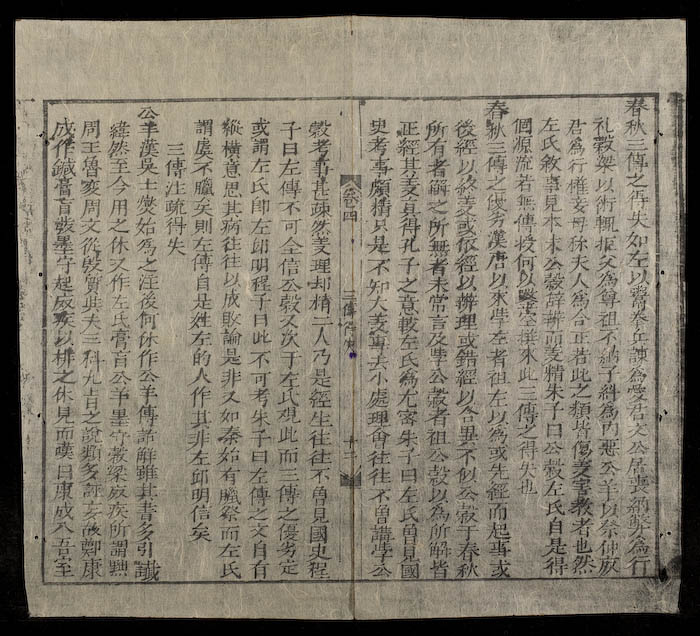 春秋三傳之得失如左以鬻拳兵諫為愛君文公居喪納幣為行
礼穀梁以衛輒拒父為尊祖不納子糾為內惡公羊以祭仲放
君為行權妾母稱夫人為合正若此之類皆傷義害教者也然
左氏敘事見本末公穀辭辨而義精朱子曰公穀左氏自是得
個源流若無傳授何以鑿空撰來此三傳之得失也
春秋三傳之優劣漢唐以來學左者祖左以為或先經而起事或
後經以終義或依經以辨理或錯經以合異不似公穀于春秋
所有者解之所無者未常言及學公穀者祖公穀以為所解皆
正經其義真得孔子之意較左氏為尤密朱子曰左氏曾見國
史考事頗精只是不知大義專去小處理會往往不曾講學公
卷四
三傳得失
十二
穀考事甚疎然義理却精二人乃是經生往往不曾見國史程
子曰左傳不可全信公穀又次于左氏觀此而三傳之優劣定
或謂左氏即左邱明程子曰此不可考朱子曰左傳之文自有
縱橫意思其病往往以成敗論是非又如秦始有臘祭而左氏
謂虞不臘矣則左傳自是姓左的人作其非左邱明信矣
三傳注疏得失
公羊漢吳士燮始為之注後何休作公羊傳諸解雖其書多引讖
緯然至今用之休又作左氏膏肓公羊墨守穀梁废疾所謂黜
周王魯变周文從殷質與夫三科九旨之說類多誣妄故鄭康
成作鍼膏肓發墨守起废疾以排之休見而嘆曰康成入吾至